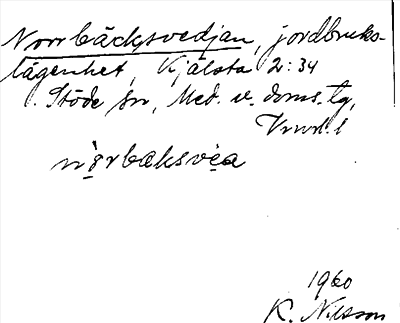 Norrbäcksvedjan, jordbruks-
lägenhet, Kjälsta 2:34
Stöde sn, Med. v. doms. tg,
Vnrl. l
nørbæksvea
1960
K. Nilsson